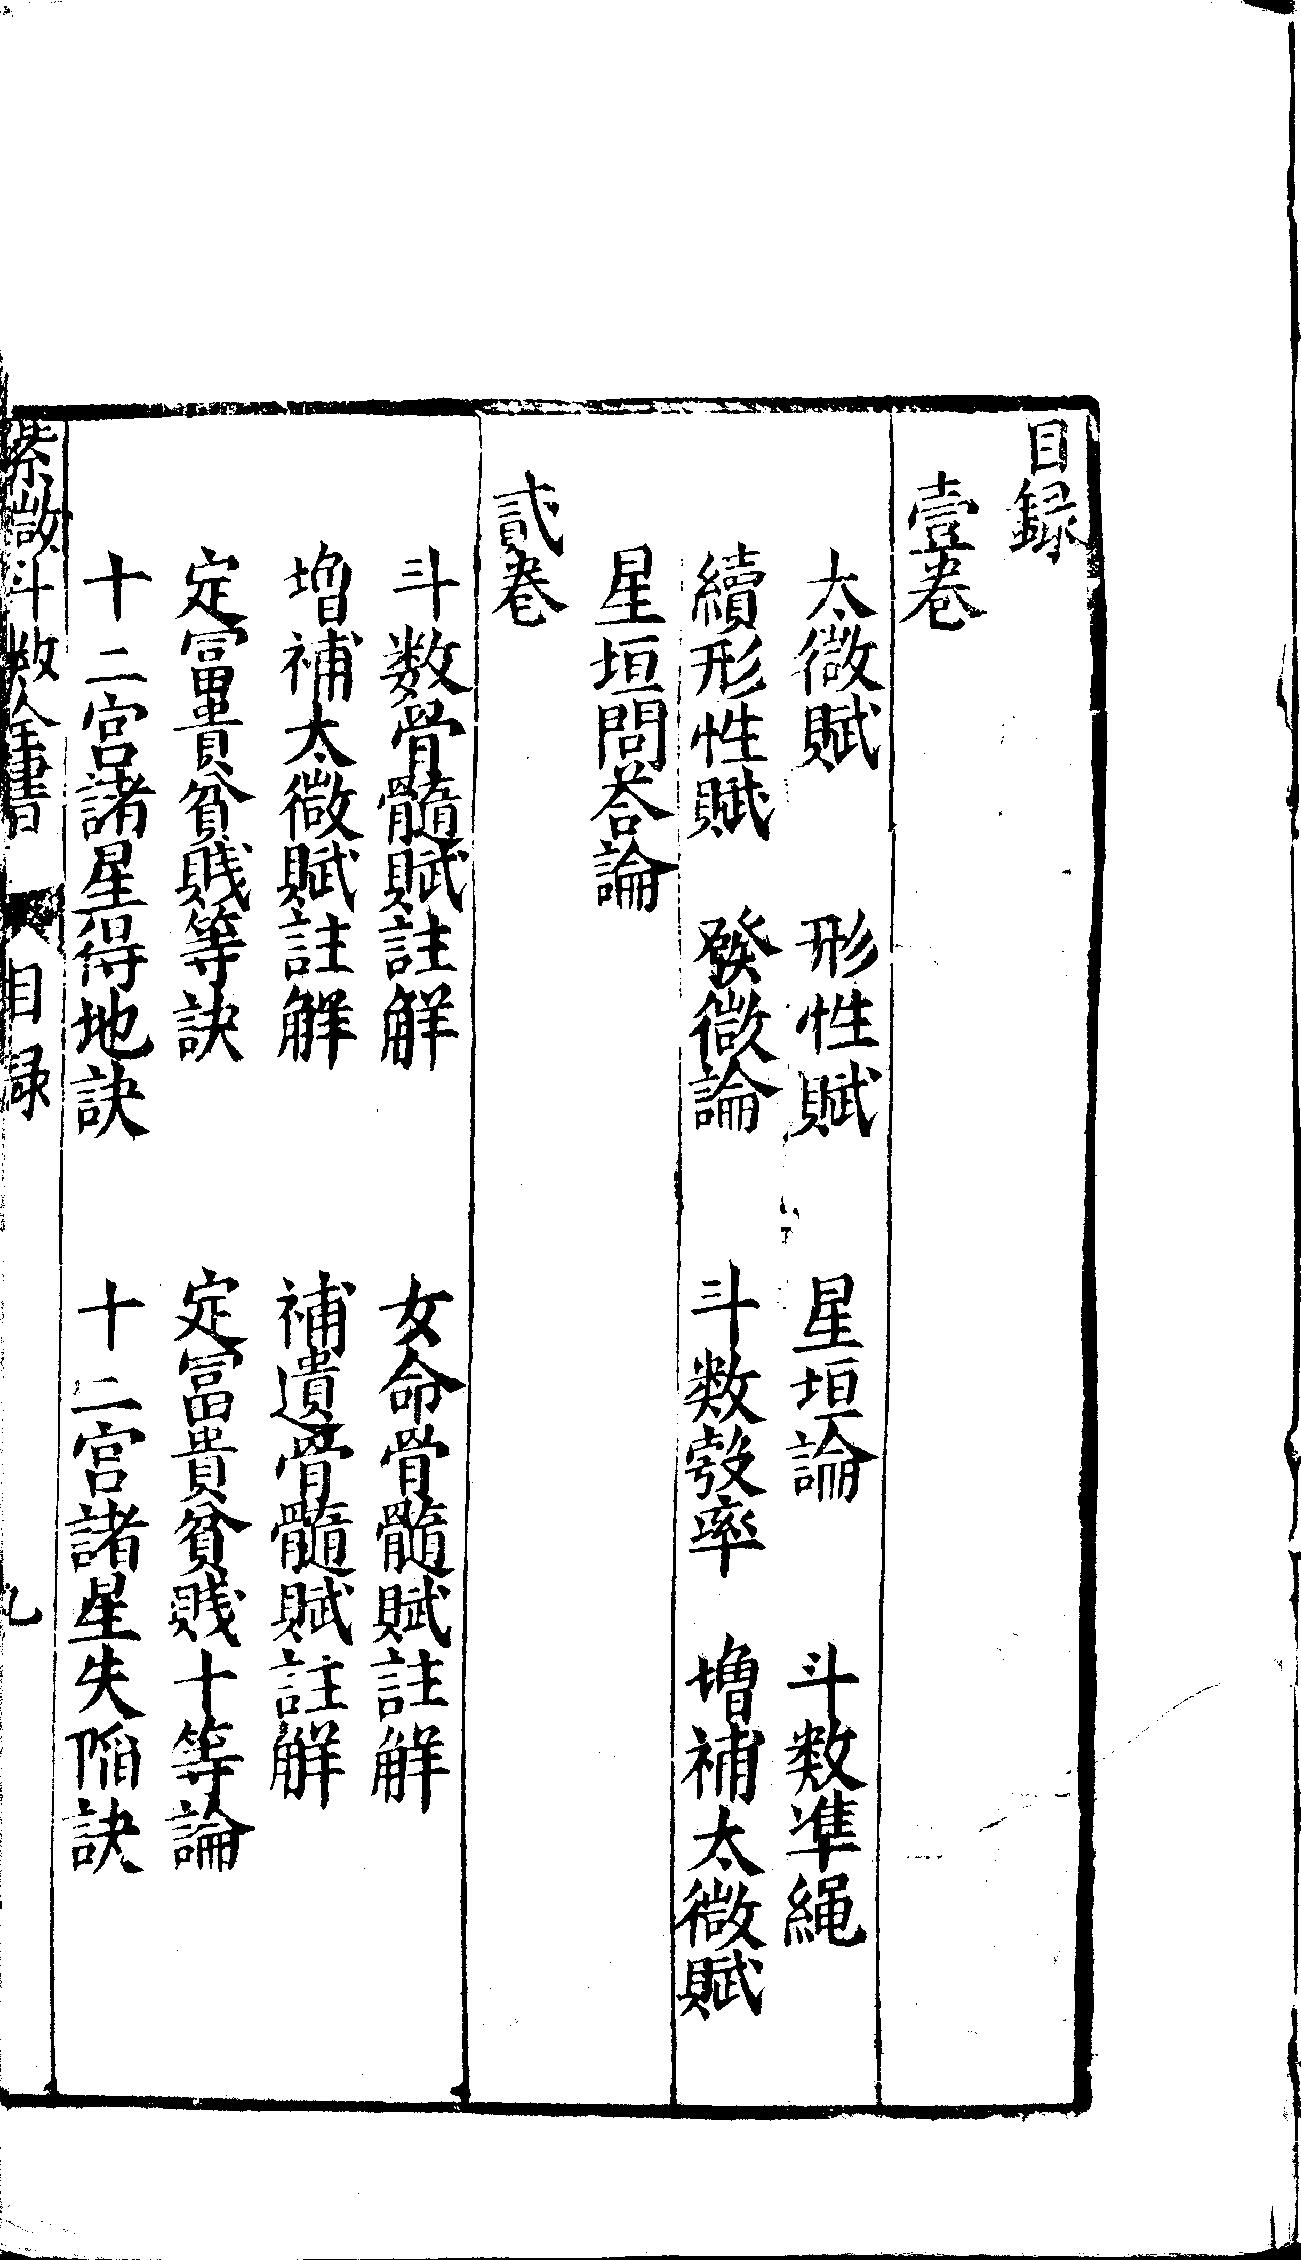 目録
壹卷
太微賦 形性賦 星垣論 斗数凖繩
續形性賦 發微論 斗数彀率 增補太微賦
星垣問荅論
貳卷
斗数骨髓賦註解 女命骨髓賦註解
增補太微賦註解 補遺骨髓賦註解
定冨貴貧賤等訣 定冨貴貧賤十等論
十二宮諸星得地訣 十二宮諸星失陷訣
紫微斗数全書 目録 九